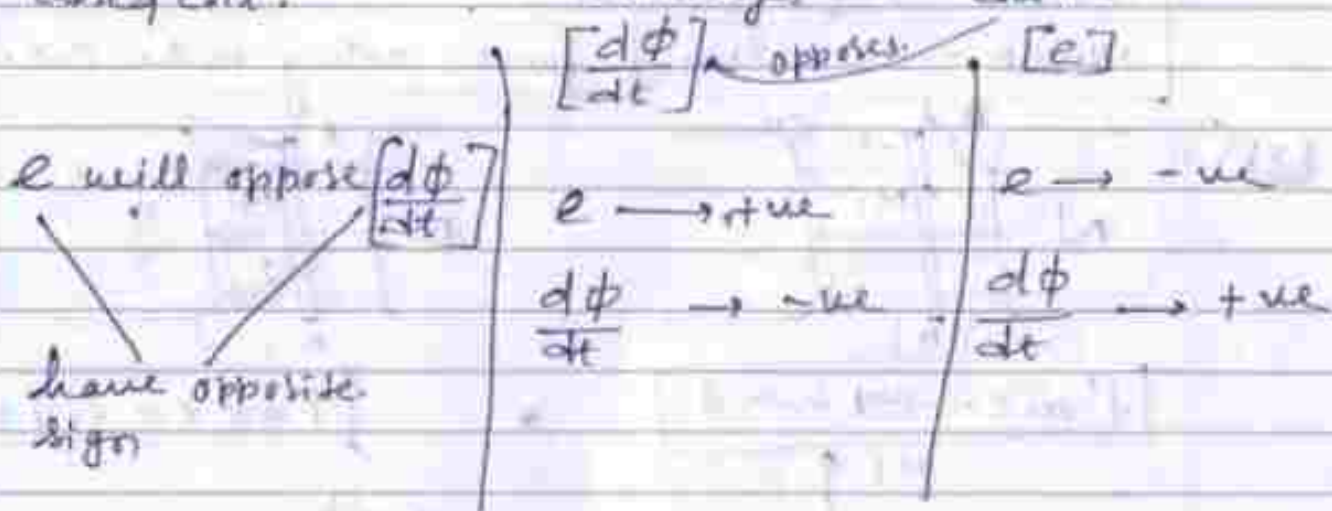 [dφ/dt] opposes. [e]
e will oppose [dφ/dt]
have opposite
sign
e → +ve
dφ/dt → -ve
e → -ve
dφ/dt → +ve